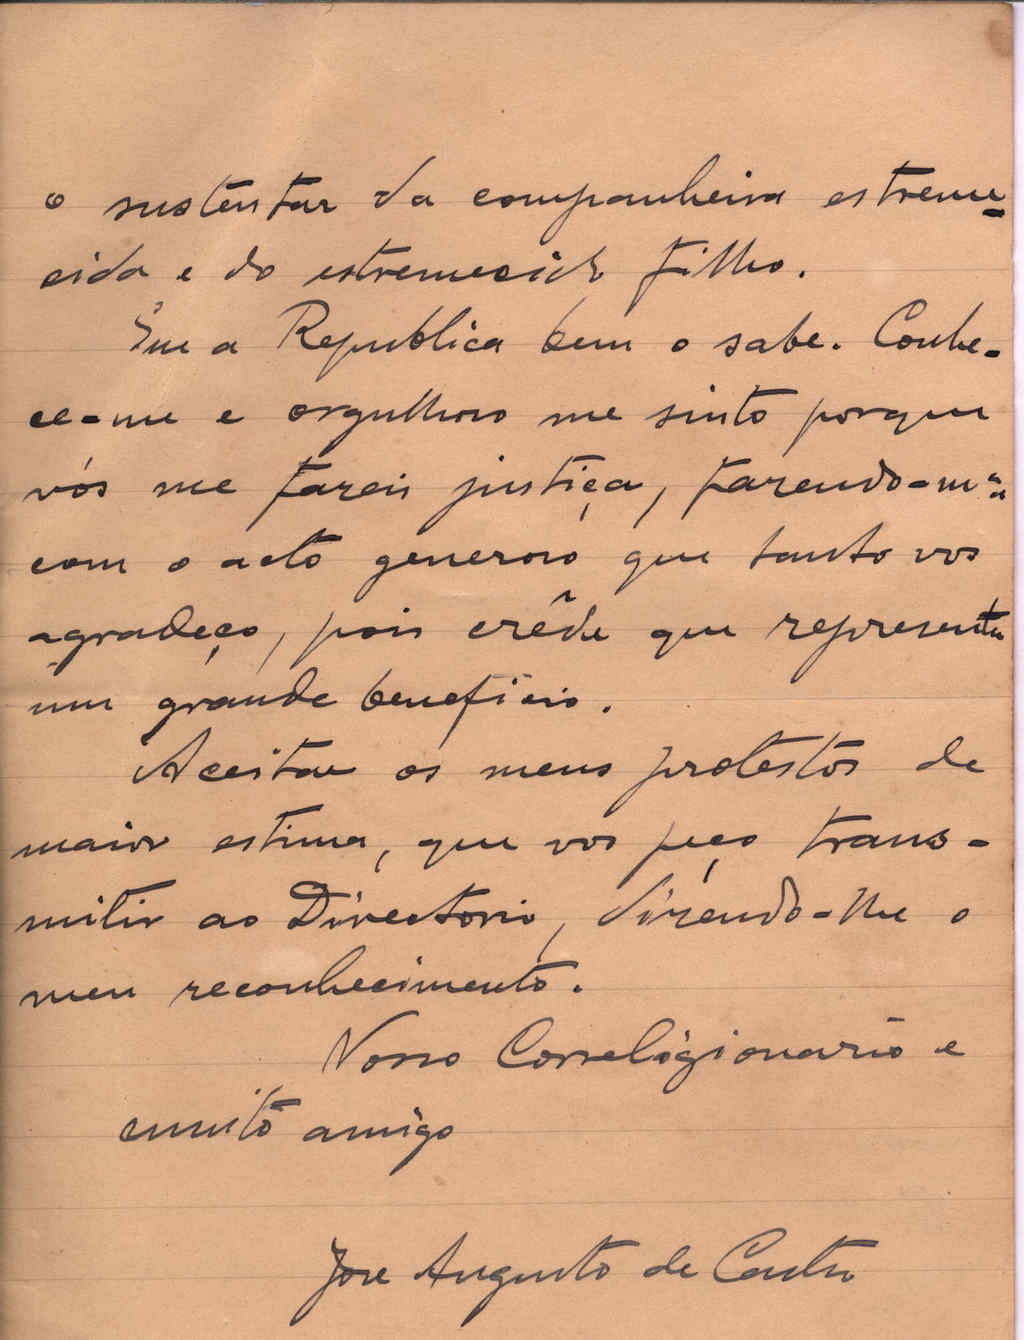 o sustentar da companheira estreme-
cida e do estremecido filho.
Que a Republica bem o sabe. Conhe-
ce-me e orgulhoso me sinto porque
vós me fareis justiça, fazendo-ma
com o acto generoso que tanto vos
agradeço, pois crêde que representa
um grande beneficio.
Aceitae os meus protestos de
maior estima, que vos peço trans-
mitir ao Directorio, dizendo-lhe o
meu reconhecimento.
Vosso Correligionario e
muito amigo
José Augusto de Castro